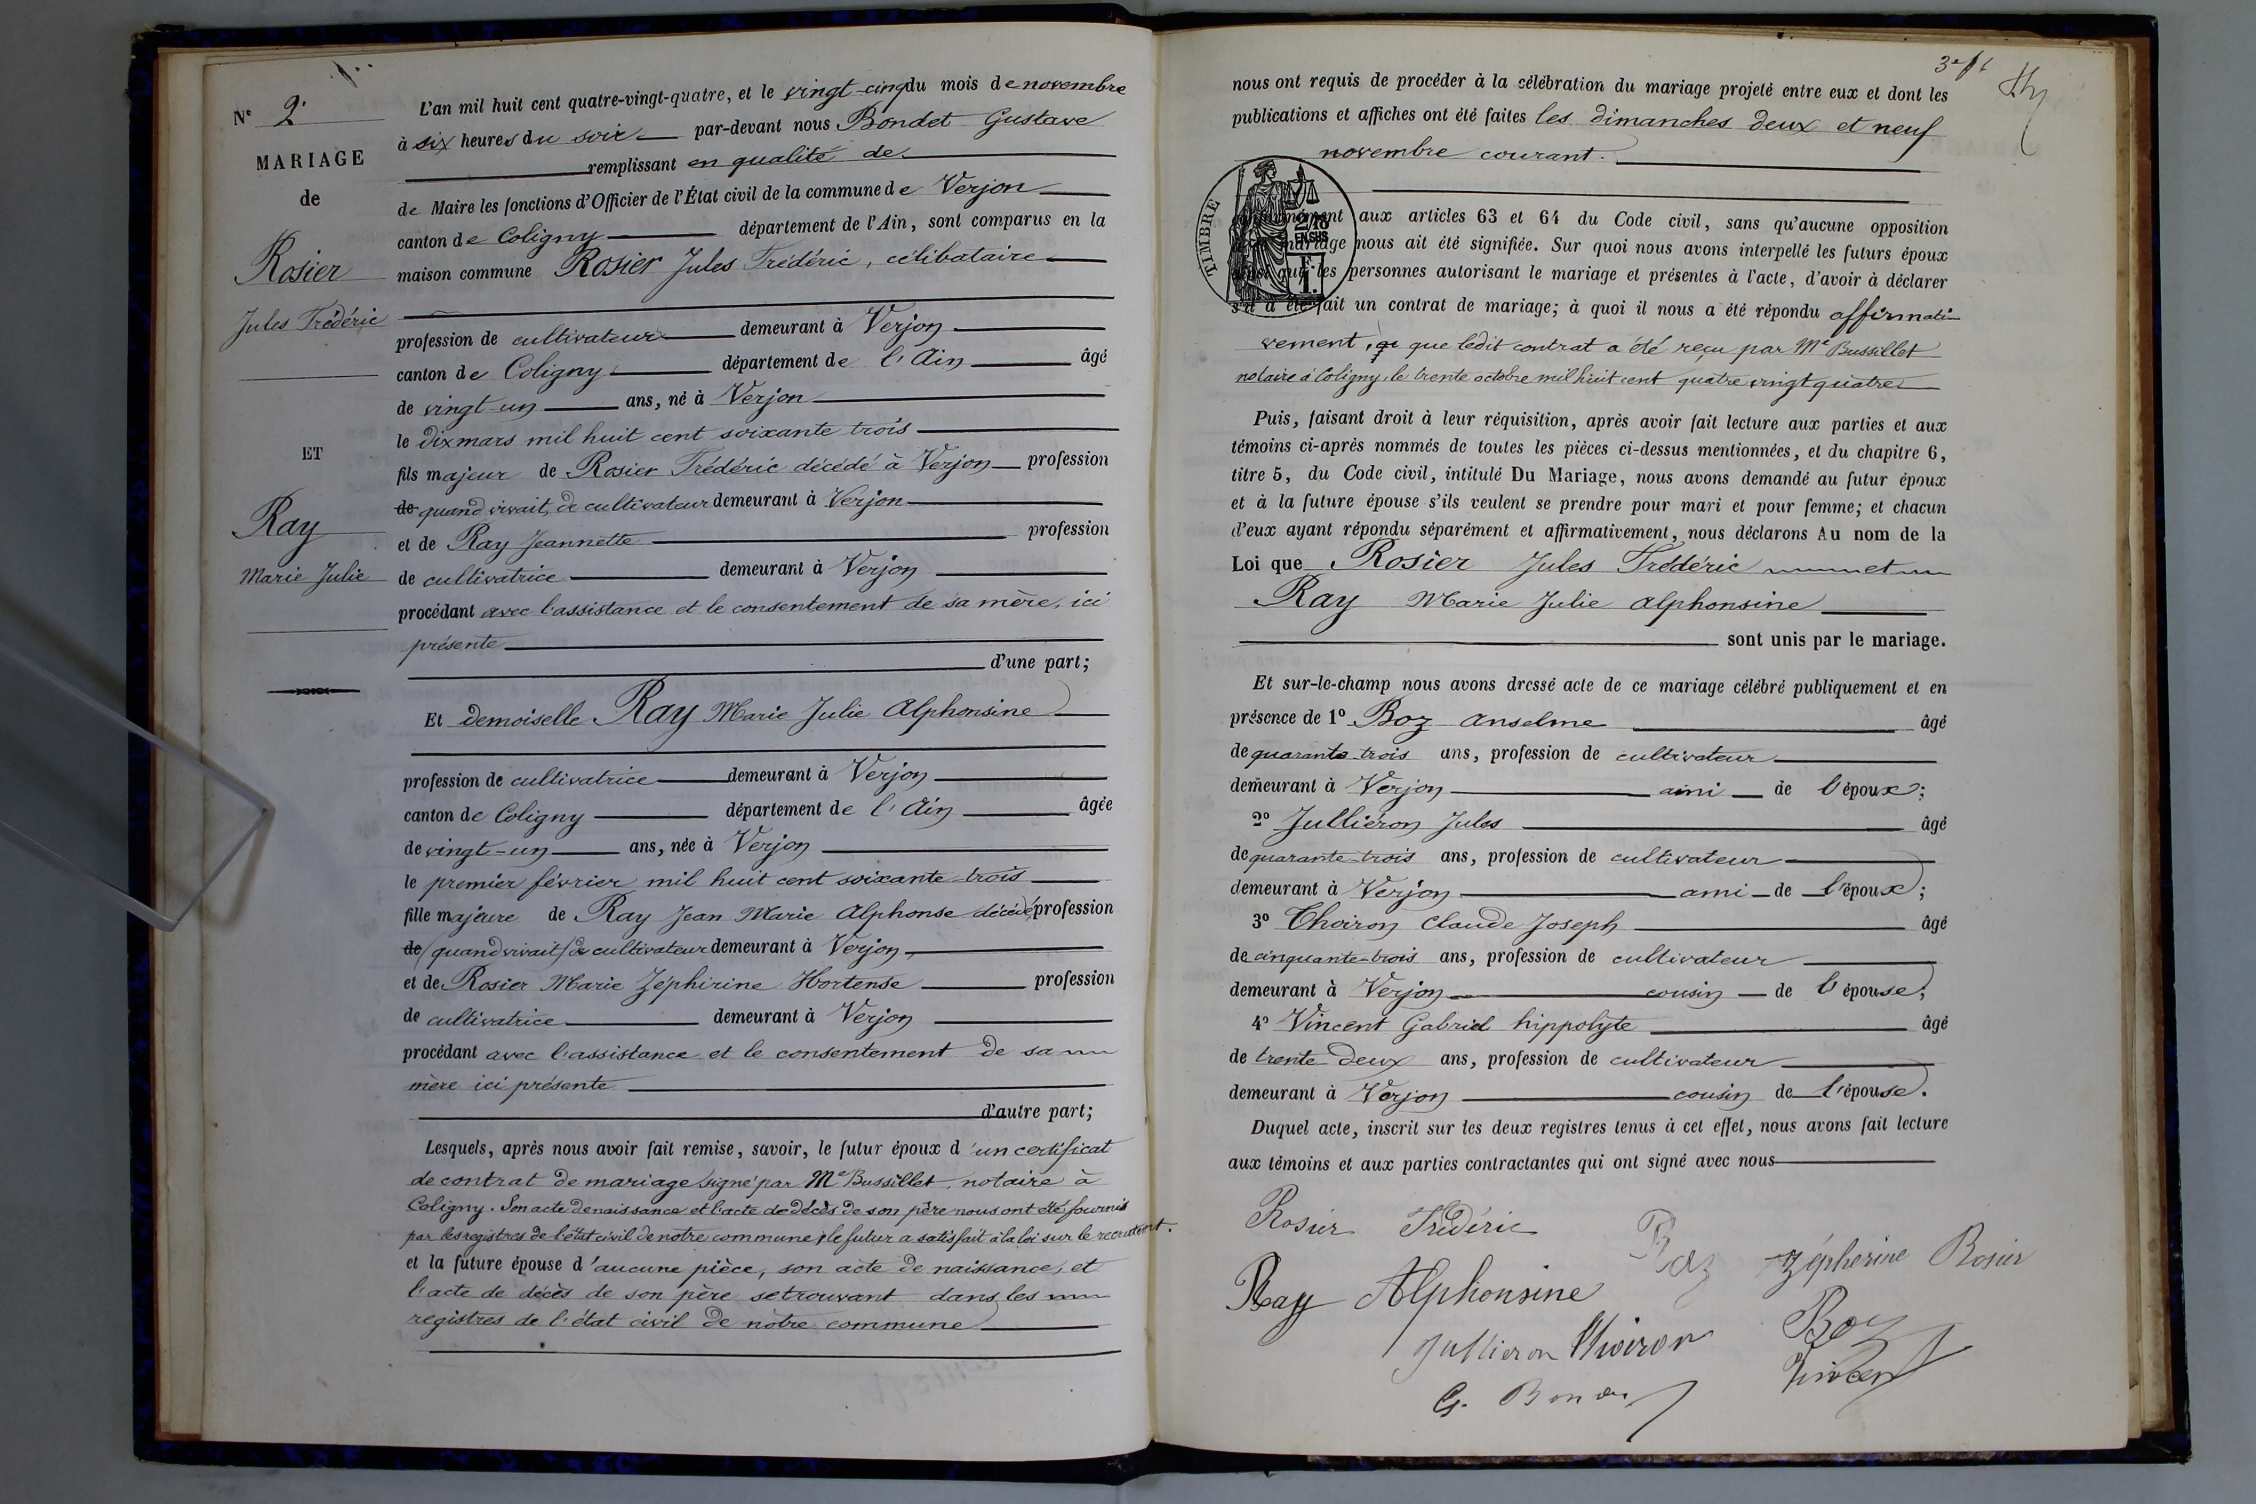 Nº 2.
MARIAGE
de
Rosier
Jules Frédéric
ET
Ray
Marie Julie
L'an mil huit cent quatre-vingt-quatre, et le vingt-cinq du mois de novembre
à six heures du soir par-devant nous Bondet Gustave
remplissant en qualité de
de Maire les fonctions d'Officier de l'État civil de la commune de Verjon
canton de Coligny département de l'Ain, sont comparus en la
maison commune Rosier Jules Frédéric, célibataire
profession de cultivateur demeurant à Verjon
canton de Coligny département de l'Ain âgé
de vingt-un ans, né à Verjon
le dix mars mil huit cent soixante trois
fils majeur de Rosier Frédéric décédé à Verjon profession
de quand vivait, de cultivateur demeurant à Verjon
et de Ray Jeannette profession
de cultivatrice demeurant à Verjon
procédant avec l'assistance et le consentement de sa mère, ici
présente
d'une part;
Et demoiselle Ray Marie Julie Alphonsine
profession de cultivatrice demeurant à Verjon
canton de Coligny département de l'Ain âgée
de vingt-un ans, née à Verjon
le premier février mil huit cent soixante-trois
fille majeure de Ray Jean Marie Alphonse décédé profession
de (quand vivait) de cultivateur demeurant à Verjon
et de Rosier Marie Zéphirine Hortense profession
de cultivatrice demeurant à Verjon
procédant avec l'assistance et le consentement de sa
mère ici présente
d'autre part;
Lesquels, après nous avoir fait remise, savoir, le futur époux d'un certificat
de contrat de mariage signé par Me Bussillet, notaire à
Coligny. Son acte de naissance et l'acte de décès de son père nous ont été fournis
par les registres de l'état civil de notre commune, le futur a satisfait à la loi sur le recrutement.
et la future épouse d'aucune pièce, son acte de naissance, et
l'acte de décès de son père se trouvant dans les
registres de l'état civil de notre commune
nous ont requis de procéder à la célébration du mariage projeté entre eux et dont les
publications et affiches ont été faites les dimanches deux et neuf
novembre courant.
TIMBRE
conformément aux articles 63 et 64 du Code civil, sans qu'aucune opposition
mariage nous ait été signifiée. Sur quoi nous avons interpellé les futurs époux
ainsi que les personnes autorisant le mariage et présentes à l'acte, d'avoir à déclarer
s'il a été fait un contrat de mariage; à quoi il nous a été répondu affirmati
vement, que ledit contrat a été reçu par Me Bussillet
notaire à Coligny, le trente octobre mil huit cent quatre vingt quatre
Puis, faisant droit à leur réquisition, après avoir fait lecture aux parties et aux
témoins ci-après nommés de toutes les pièces ci-dessus mentionnées, et du chapitre 6,
titre 5, du Code civil, intitulé Du Mariage, nous avons demandé au futur époux
et à la future épouse s'ils veulent se prendre pour mari et pour femme; et chacun
d'eux ayant répondu séparément et affirmativement, nous déclarons Au nom de la
Loi que Rosier Jules Frédéric et
Ray Marie Julie Alphonsine
sont unis par le mariage.
Et sur-le-champ nous avons dressé acte de ce mariage célébré publiquement et en
présence de 1º Boz Anselme âgé
de quarante-trois ans, profession de cultivateur
demeurant à Verjon ami de l'époux;
2º Julliéron Jules âgé
de quarante-trois ans, profession de cultivateur
demeurant à Verjon ami de l'époux;
3º Thoiron Claude Joseph âgé
de cinquante-trois ans, profession de cultivateur
demeurant à Verjon cousin de l'épouse;
4º Vincent Gabriel hippolyte âgé
de trente-deux ans, profession de cultivateur
demeurant à Verjon cousin de l'épouse.
Duquel acte, inscrit sur les deux registres tenus à cet effet, nous avons fait lecture
aux témoins et aux parties contractantes qui ont signé avec nous
Rosier Frédéric
Zépherine Rosier
Ray Alphonsine
Boz
Jullieron Thoiron
Vincent
G. Bondet